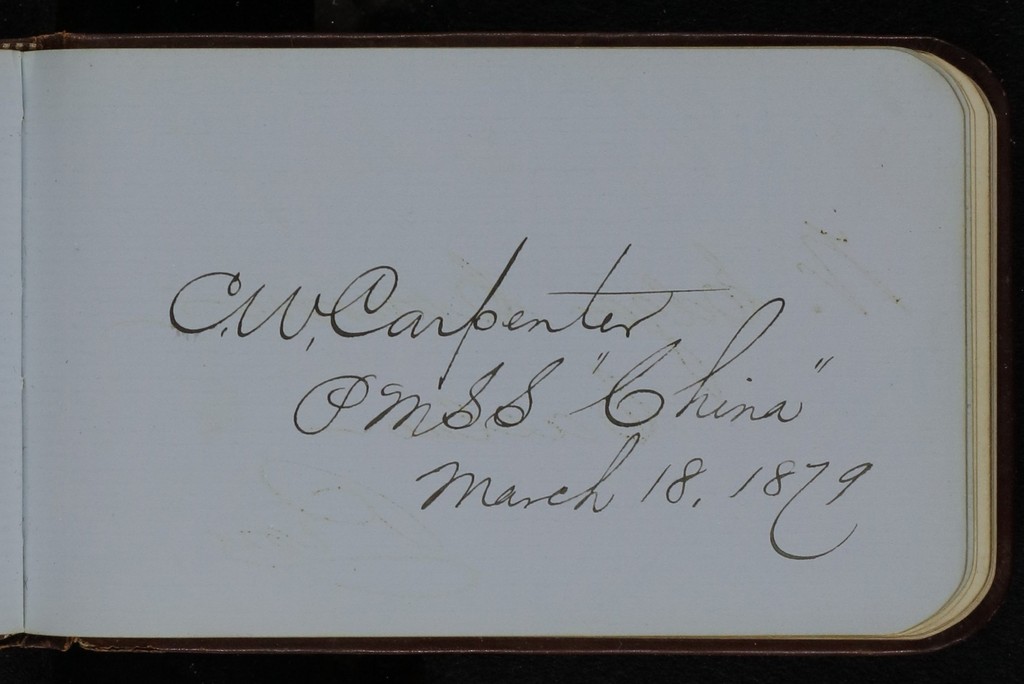 C. W. Carpenter
PMSS "China"
March 18, 1879